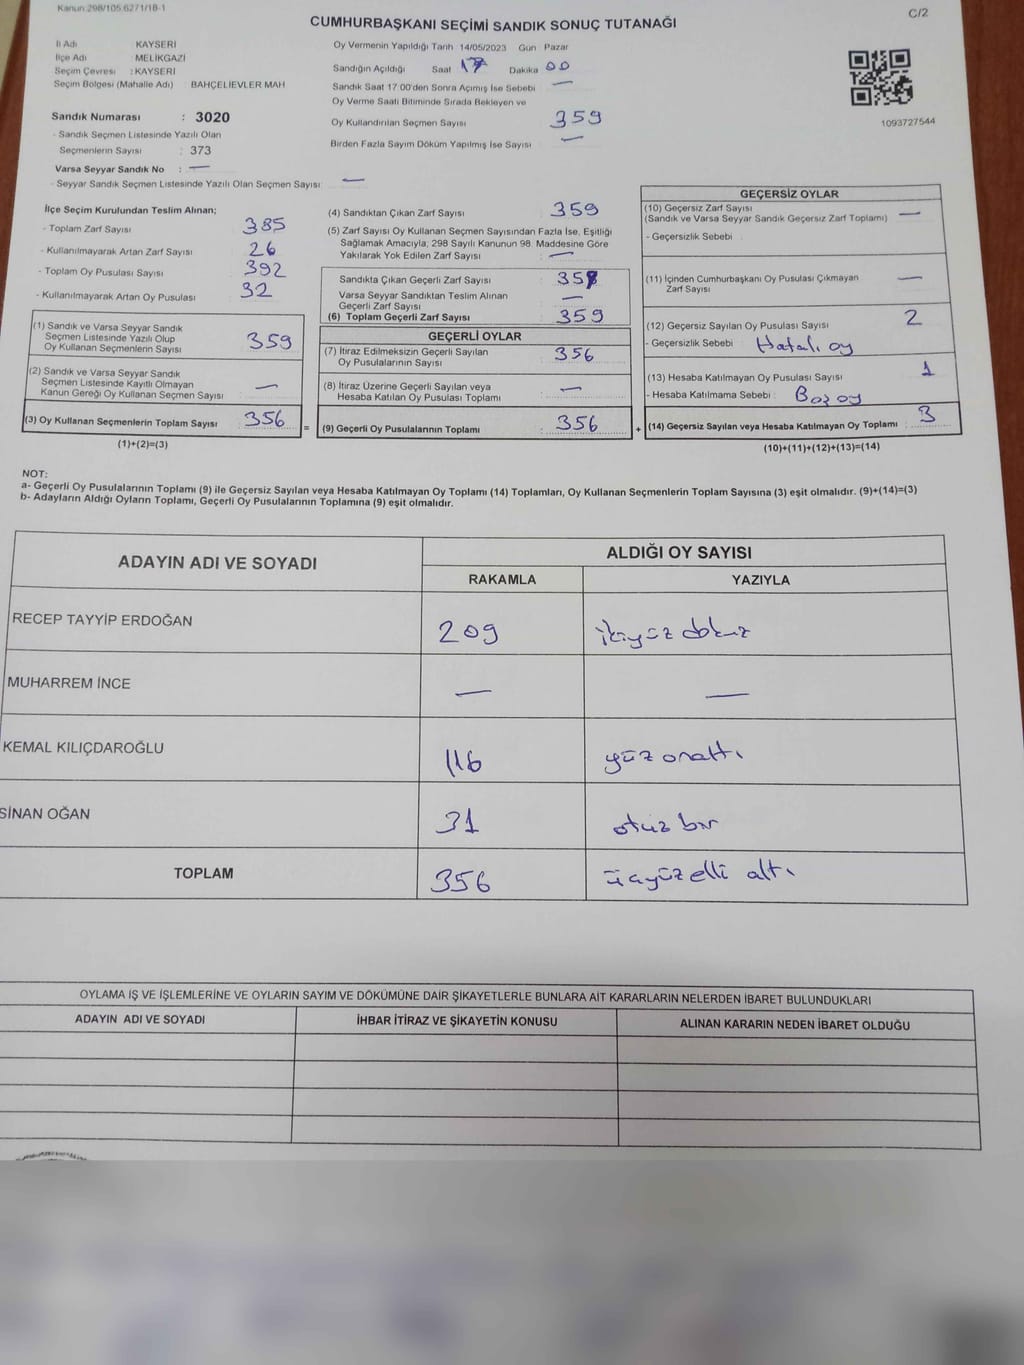 Kanun:298/105.6271/18-1
C/2
CUMHURBAŞKANI SEÇİMİ SANDIK SONUÇ TUTANAĞI
İl Adı : KAYSERİ
İlçe Adı : MELİKGAZİ
Seçim Çevresi : KAYSERİ
Seçim Bölgesi (Mahalle Adı) BAHÇELİEVLER MAH
Sandık Numarası : 3020
- Sandık Seçmen Listesinde Yazılı Olan
Seçmenlerin Sayısı : 373
Varsa Seyyar Sandık No : —
- Seyyar Sandık Seçmen Listesinde Yazılı Olan Seçmen Sayısı: —
Oy Vermenin Yapıldığı Tarih 14/05/2023 Gün Pazar
Sandığın Açıldığı Saat 17 Dakika 00
Sandık Saat 17.00'den Sonra Açımış İse Sebebi : —
Oy Verme Saati Bitiminde Sırada Bekleyen ve
Oy Kullandırılan Seçmen Sayısı : 359
Birden Fazla Sayım Döküm Yapılmış İse Sayısı : —
1093727544
İlçe Seçim Kurulundan Teslim Alınan;
- Toplam Zarf Sayısı : 385
- Kullanılmayarak Artan Zarf Sayısı : 26
- Toplam Oy Pusulası Sayısı : 392
- Kullanılmayarak Artan Oy Pusulası : 32
(1) Sandık ve Varsa Seyyar Sandık
Seçmen Listesinde Yazılı Olup
Oy Kullanan Seçmenlerin Sayısı : 359
(2) Sandık ve Varsa Seyyar Sandık
Seçmen Listesinde Kayıtlı Olmayan
Kanun Gereği Oy Kullanan Seçmen Sayısı : —
(3) Oy Kullanan Seçmenlerin Toplam Sayısı : 356
(1)+(2)=(3)
=
(4) Sandıktan Çıkan Zarf Sayısı : 359
(5) Zarf Sayısı Oy Kullanan Seçmen Sayısından Fazla İse, Eşitliği
Sağlamak Amacıyla; 298 Sayılı Kanunun 98. Maddesine Göre
Yakılarak Yok Edilen Zarf Sayısı : —
Sandıkta Çıkan Geçerli Zarf Sayısı : 359
Varsa Seyyar Sandıktan Teslim Alınan
Geçerli Zarf Sayısı : —
(6) Toplam Geçerli Zarf Sayısı : 359
GEÇERLİ OYLAR
(7) İtiraz Edilmeksizin Geçerli Sayılan
Oy Pusulalarının Sayısı : 356
(8) İtiraz Üzerine Geçerli Sayılan veya
Hesaba Katılan Oy Pusulası Toplamı : —
(9) Geçerli Oy Pusulalarının Toplamı : 356
+
GEÇERSİZ OYLAR
(10) Geçersiz Zarf Sayısı
(Sandık ve Varsa Seyyar Sandık Geçersiz Zarf Toplamı) : —
- Geçersizlik Sebebi :
(11) İçinden Cumhurbaşkanı Oy Pusulası Çıkmayan
Zarf Sayısı : —
(12) Geçersiz Sayılan Oy Pusulası Sayısı : 2
- Geçersizlik Sebebi : Hatalı oy
(13) Hesaba Katılmayan Oy Pusulası Sayısı : 1
- Hesaba Katılmama Sebebi : Boş oy
(14) Geçersiz Sayılan veya Hesaba Katılmayan Oy Toplamı : 3
(10)+(11)+(12)+(13)=(14)
NOT:
a- Geçerli Oy Pusulalarının Toplamı (9) ile Geçersiz Sayılan veya Hesaba Katılmayan Oy Toplamı (14) Toplamları, Oy Kullanan Seçmenlerin Toplam Sayısına (3) eşit olmalıdır. (9)+(14)=(3)
b- Adayların Aldığı Oyların Toplamı, Geçerli Oy Pusulalarının Toplamına (9) eşit olmalıdır.
ADAYIN ADI VE SOYADI ALDIĞI OY SAYISI
RAKAMLA YAZIYLA
RECEP TAYYİP ERDOĞAN 209 ikiyüz dokuz
MUHARREM İNCE — —
KEMAL KILIÇDAROĞLU 116 yüz onaltı
SİNAN OĞAN 31 otuz bir
TOPLAM 356 üçyüzelli altı
OYLAMA İŞ VE İŞLEMLERİNE VE OYLARIN SAYIM VE DÖKÜMÜNE DAİR ŞİKAYETLERLE BUNLARA AİT KARARLARIN NELERDEN İBARET BULUNDUKLARI
ADAYIN ADI VE SOYADI İHBAR İTİRAZ VE ŞİKAYETİN KONUSU ALINAN KARARIN NEDEN İBARET OLDUĞU